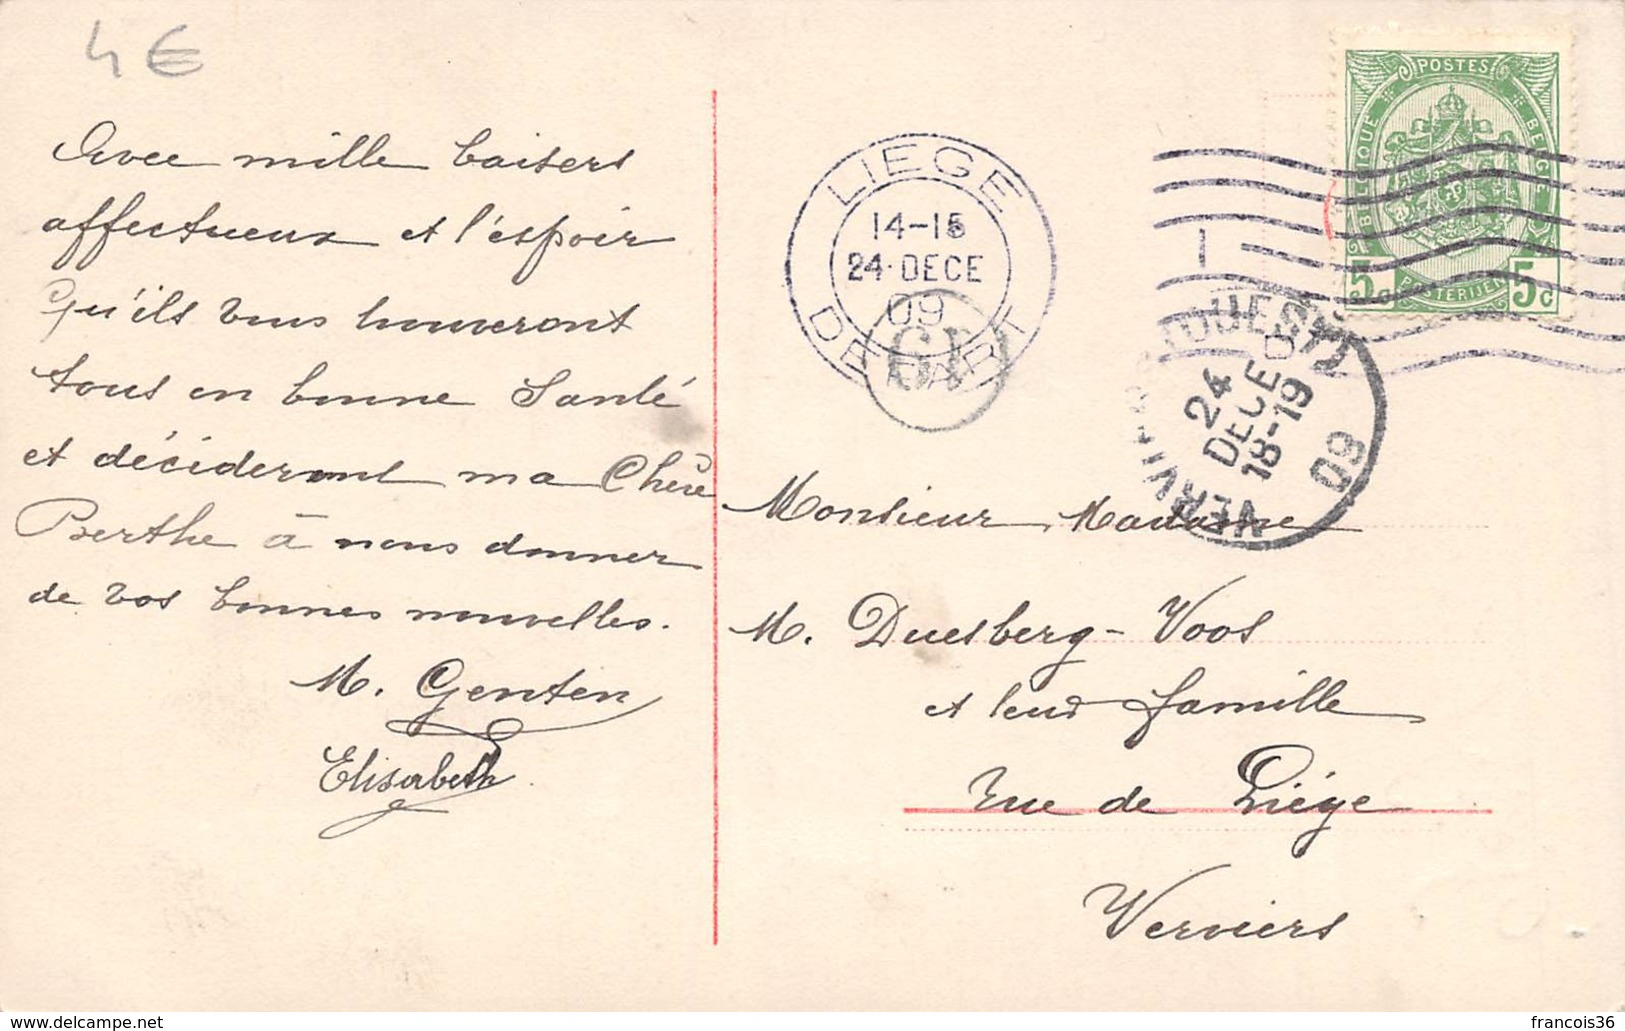 4 €
Avec mille baisers
affectueux et l'éspoir
Qu'ils vous trouveront
tous en bonne Santé
et décideront ma Chère
Berthe à nous donner
de vos bonnes nouvelles.
M. Genten
Elisabeth
POSTES
BELGIQUE
BELGIE
POSTERIJEN
5c 5c
LIEGE
14-15
24 DECE
09
DEPART
VERVIERS
24
DECE
18-19
09
Monsieur Madame
M. Duesberg-Voos
et leur famille
Rue de Liége
Verviers
francois36